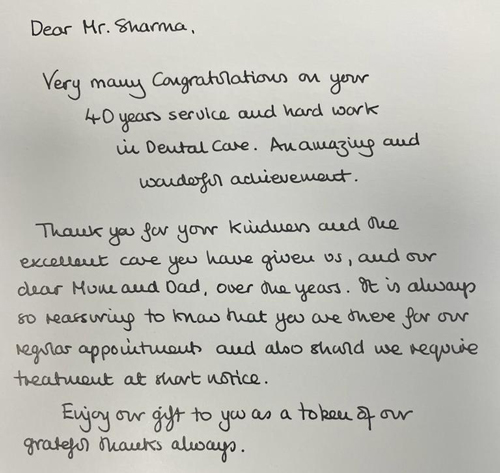 Dear Mr. Sharma,
Very many Congratulations on your
40 years service and hard work
in Dental Care. An amazing and
wonderful achievement.
Thank you for your kindness and the
excellent care you have given us, and our
dear Mum and Dad, over the years. It is always
so reassuring to know that you are there for our
regular appointments and also should we require
treatment at short notice.
Enjoy our gift to you as a token of our
grateful thanks always.